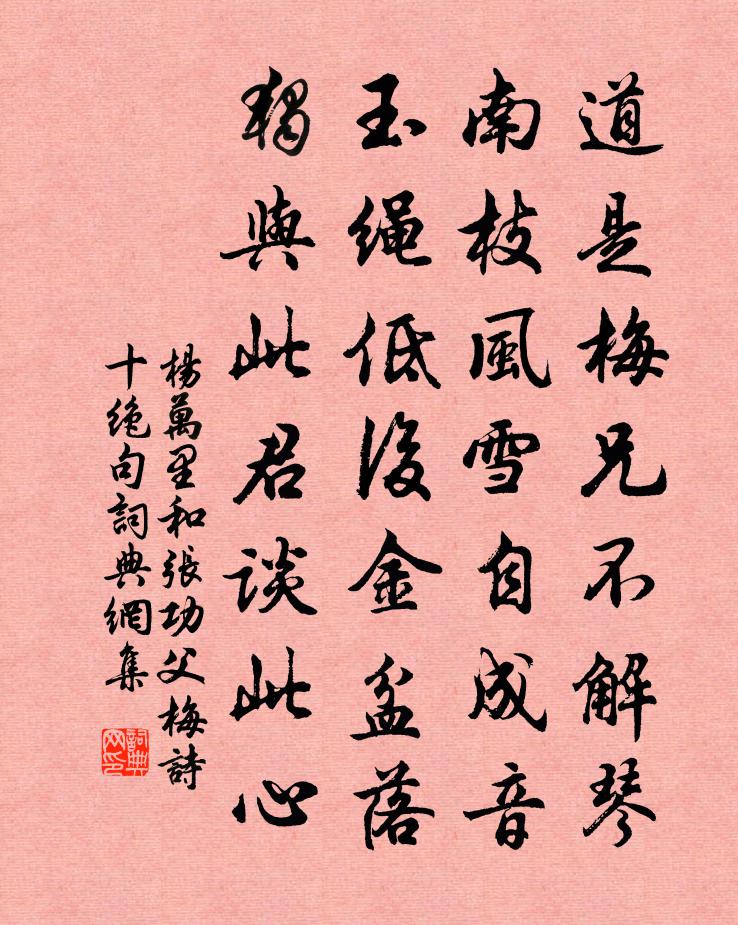 道是梅兄不解琴
南枝風雪自成音
玉绳低後金盆落
獨與此君談此心
楊萬里和張功父梅詩
十绝句詞典網集
詞典网印